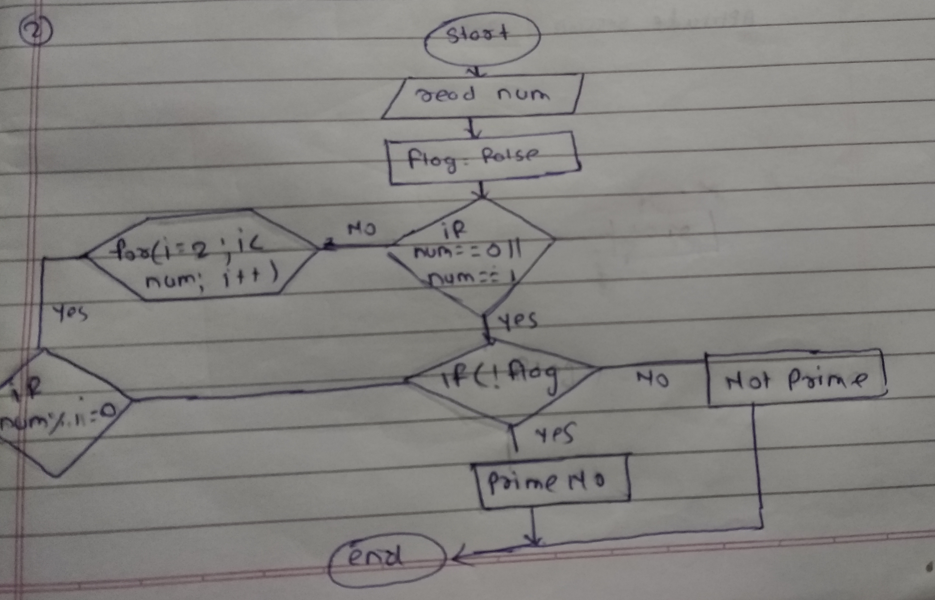 2
Start
read num
flag = false
NO
if
num==0||
num==1
for(i=2; i<
num; i++)
yes
yes
if
num%i=0
if(!flag
NO
Not Prime
yes
Prime No
end